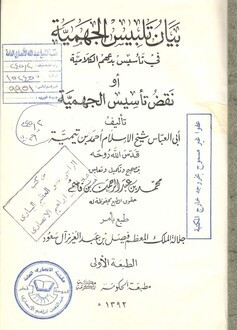 بيان تلبيس الجهمية
في تأسيس بدعهم الكلامية
أو
نقض تأسيس الجهمية
تأليف
أبي العباس شيخ الإسلام أحمد بن تيمية
قدس الله روحه
بتصحيح وتكميل وتعليق
محمد بن عبد الرحمن بن قاسم
حقوق الطبع محفوظة له
طبع بأمر
جلالة الملك المعظم فيصل بن عبد العزيز آل سعود
الطبعة الأولى
مطبعة الحكومة
١٣٩٢ هـ